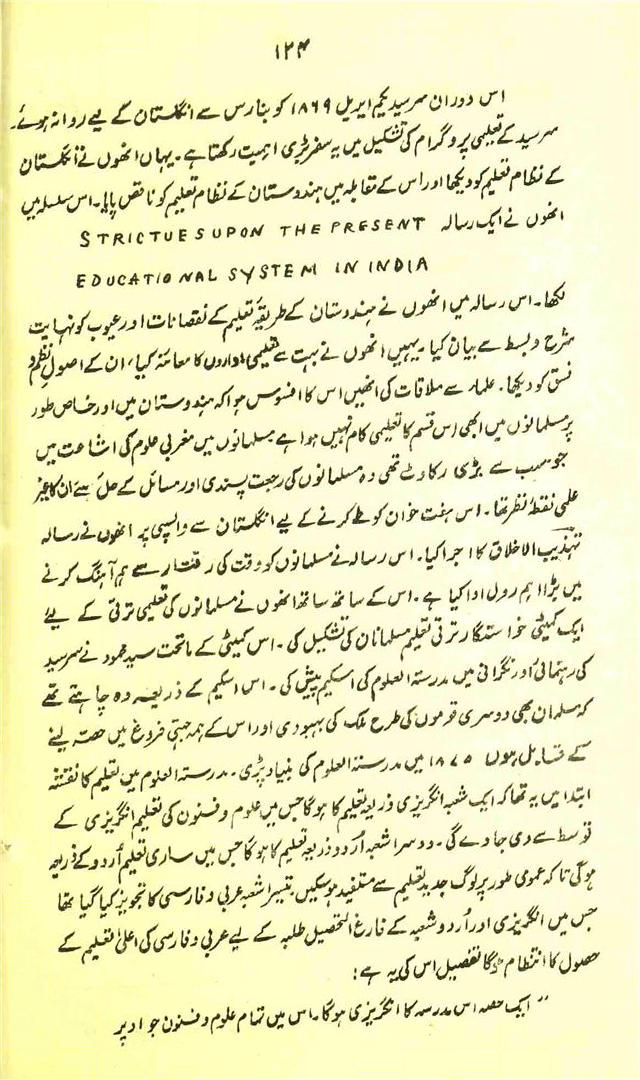 ۱۲۴
اس دوران سرسید یکم اپریل ۱۸۶۹ کو بنارس سے انگلستان کے لیے روانہ ہوئے۔
سرسید کے تعلیمی پروگرام کی تشکیل میں یہ سفر بڑی اہمیت رکھتا ہے۔ یہاں انھوں نے انگلستان
کے نظام تعلیم کو دیکھا اور اس کے مقابلہ میں ہندوستان کے نظام تعلیم کو ناقص پایا۔ اس سلسلہ میں
انھوں نے ایک رسالہ STRICTUES UPON THE PRESENT
EDUCATIONAL SYSTEM IN INDIA
لکھا۔ اس رسالہ میں انھوں نے ہندوستان کے طریقۂ تعلیم کے نقصانات اور عیوب کو نہایت
شرح و بسط سے بیان کیا۔ یہیں انھوں نے بہت سے تعلیمی اداروں کا معائنہ کیا، ان کے اصول نظم و
نسق کو دیکھا۔ علماء سے ملاقات کی انھیں اس کا افسوس ہوا کہ ہندوستان میں اور خاص طور
پر مسلمانوں میں ابھی اس قسم کا تعلیمی کام نہیں ہوا ہے مسلمانوں میں مغربی علوم کی اشاعت میں
جو سب سے بڑی رکاوٹ تھی وہ مسلمانوں کی رجعت پسندی اور مسائل کے حل سے ان کا غیر
علمی نقطۂ نظر تھا۔ اس ہفت خوان کو طے کرنے کے لیے انگلستان سے واپسی پر انھوں نے رسالہ
تہذیب الاخلاق کا اجرا کیا۔ اس رسالہ نے مسلمانوں کو وقت کی رفتار سے ہم آہنگ کرنے
میں بڑا اہم رول ادا کیا ہے۔ اس کے ساتھ ساتھ انھوں نے مسلمانوں کی تعلیمی ترقی کے لیے
ایک کمیٹی خواستگار ترقی تعلیم مسلمانان کی تشکیل کی۔ اس کمیٹی کے ماتحت سید محمود نے سرسید
کی رہنمائی اور نگرانی میں مدرستہ العلوم کی اسکیم پیش کی۔ اس اسکیم کے ذریعہ وہ چاہتے تھے
کہ مسلمان بھی دوسری قوموں کی طرح ملک کی بہبودی اور اس کے ہمہ جہتی فروغ میں حصہ لینے
کے قابل ہوں ۱۸۷۵ میں مدرستہ العلوم کی بنیاد پڑی۔ مدرستہ العلوم میں تعلیم کا نقشہ
ابتدا میں یہ تھا کہ ایک شعبہ انگریزی ذریعہ تعلیم کا ہوگا جس میں علوم و فنون کی تعلیم انگریزی کے
توسط سے دی جاوے گی۔ دوسرا شعبہ اُردو ذریعہ تعلیم کا ہوگا جس میں ساری تعلیم اُردو کے ذریعہ
ہوگی تاکہ عمومی طور پر لوگ جدید تعلیم سے مستفید ہو سکیں۔ تیسرا شعبہ عربی و فارسی کا تجویز کیا گیا تھا
جس میں انگریزی اور اُردو شعبہ کے فارغ التحصیل طلبہ کے لیے عربی و فارسی کی اعلیٰ تعلیم کے
حصول کا انتظام ہوگا تفصیل اس کی یہ ہے:
"ایک حصہ اس مدرسہ کا انگریزی ہوگا۔ اس میں تمام علوم و فنون جو اوپر